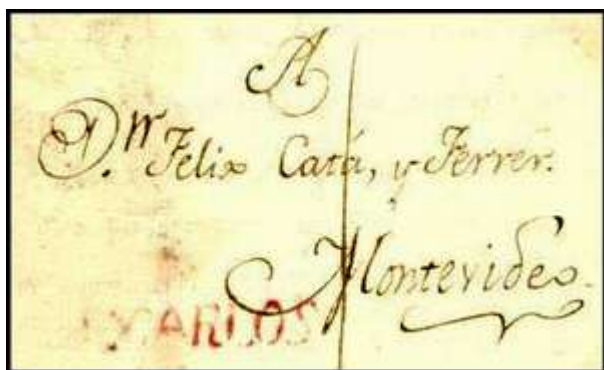 A
D.n Felix Catá, y Ferrer.
Montevideo.
CARLOS